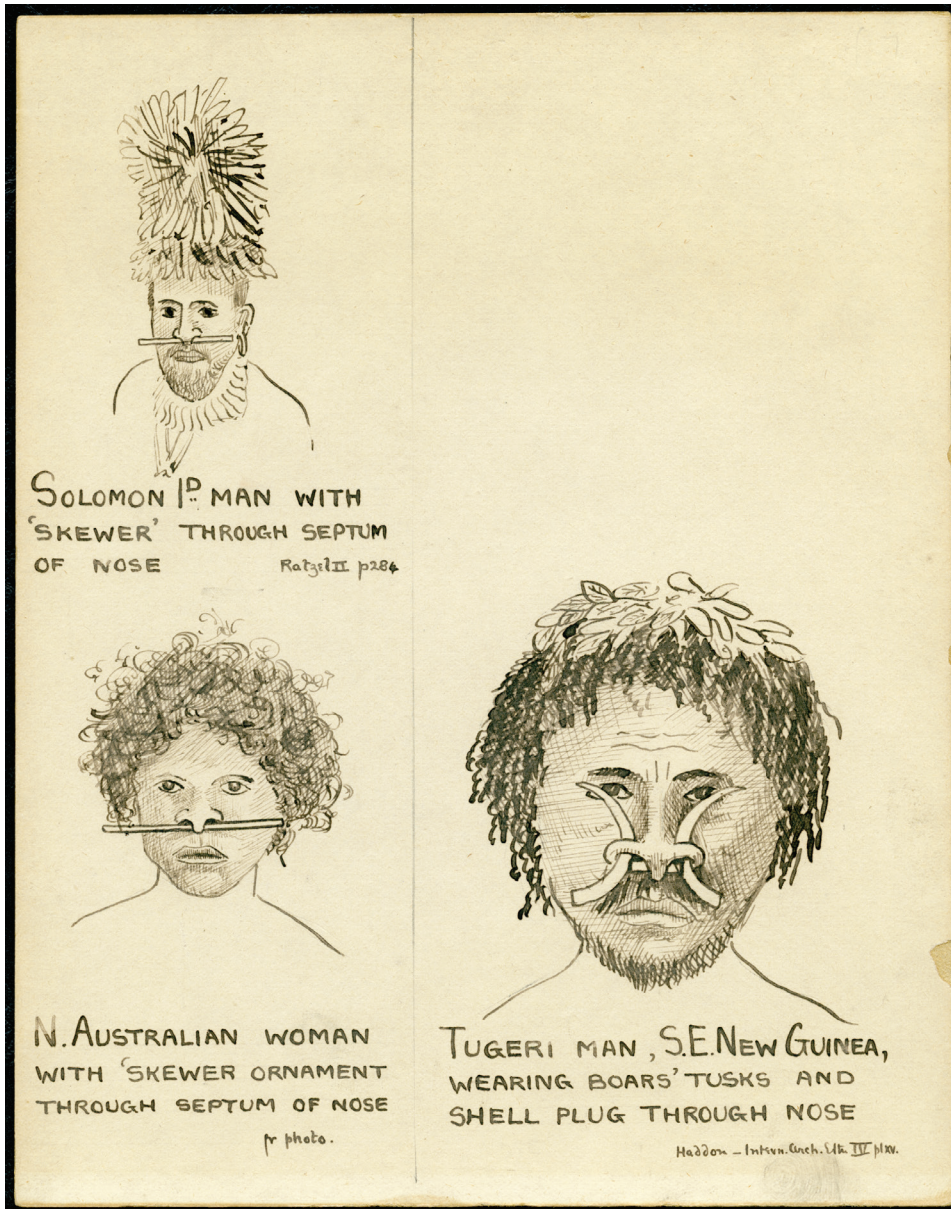 SOLOMON ID. MAN WITH
'SKEWER' THROUGH SEPTUM
OF NOSE
Ratzel II p284
N. AUSTRALIAN WOMAN
WITH 'SKEWER ORNAMENT
THROUGH SEPTUM OF NOSE
fr photo.
TUGERI MAN, S.E. NEW GUINEA,
WEARING BOARS' TUSKS AND
SHELL PLUG THROUGH NOSE
Haddon – Intern. Arch. Eth. IV pl xv.